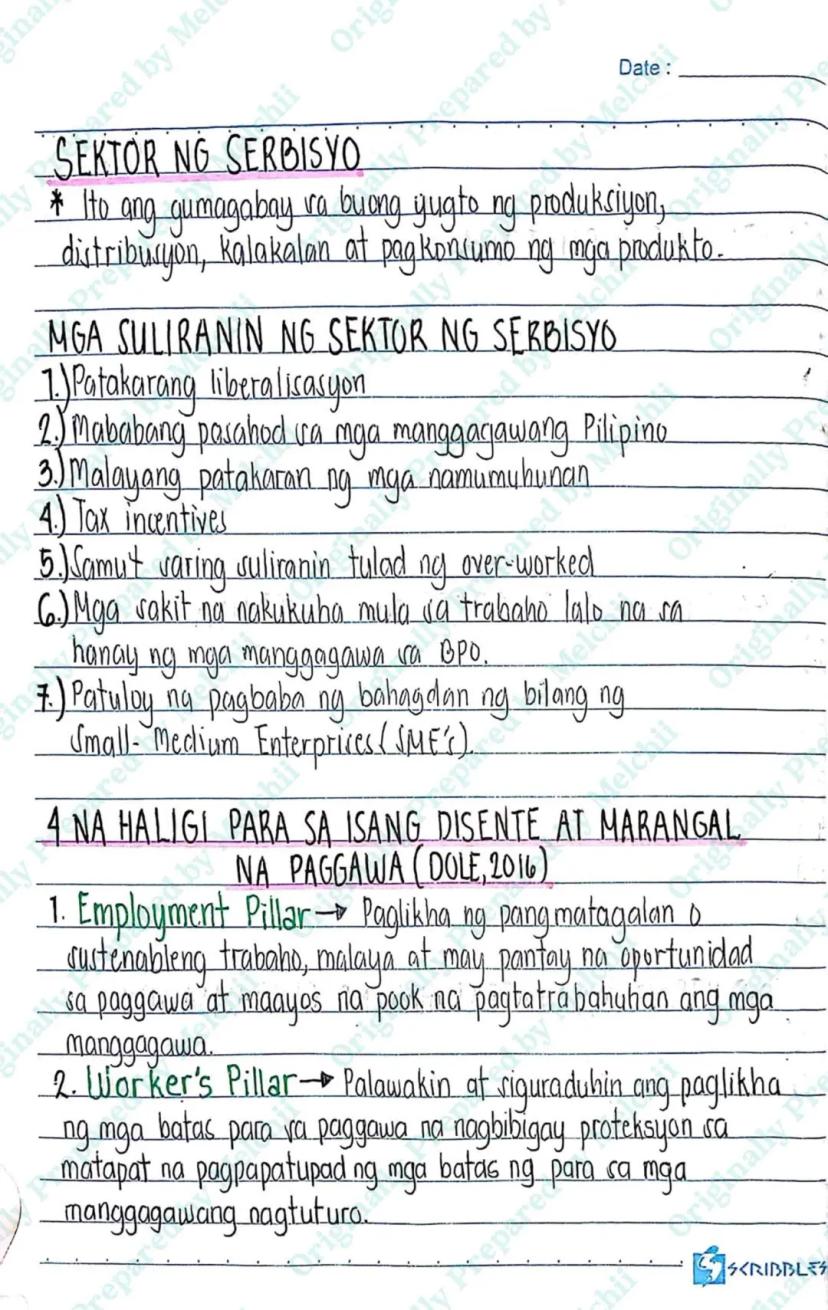 Date :
SEKTOR NG SERBISYO
* Ito ang gumagabay sa buong yugto ng produksiyon,
distribusyon, kalakalan at pagkonsumo ng mga produkto.
MGA SULIRANIN NG SEKTOR NG SERBISYO
1.) Patakarang liberalisasyon
2.) Mababang pasahod sa mga manggagawang Pilipino
3.) Malayang patakaran ng mga namumuhunan
4.) Tax incentives
5.) Samu't saring suliranin tulad ng over-worked
6.) Mga sakit na nakukuha mula sa trabaho lalo na sa
hanay ng mga manggagawa sa BPO.
7.) Patuloy na pagbaba ng bahagdan ng bilang ng
Small- Medium Enterprices (SME's).
4 NA HALIGI PARA SA ISANG DISENTE AT MARANGAL
NA PAGGAWA (DOLE, 2016)
1. Employment Pillar → Paglikha ng pangmatagalan o
sustenableng trabaho, malaya at may pantay na oportunidad
sa paggawa at maayos na pook na pagtatrabahuhan ang mga
manggagawa.
2. Worker's Pillar → Palawakin at siguraduhin ang paglikha
ng mga batas para sa paggawa na nagbibigay proteksyon sa
matapat na pagpapatupad ng mga batas ng para sa mga
manggagawang nagtuturo.
SCRIBBLES
Originally Prepared by Melchii